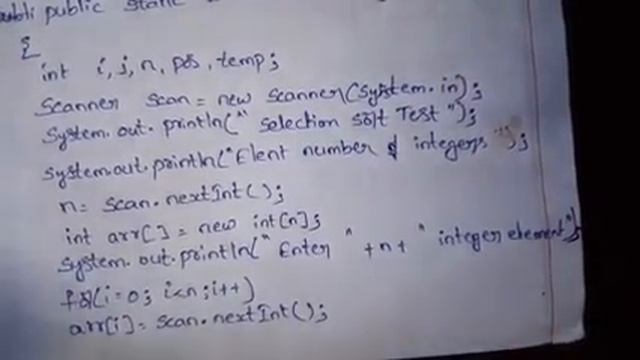 public static
{
int i, j, n, pos, temp;
Scanner scan = new Scanner(System.in);
System.out.println(" selection sort Test ");
System.out.println("Elent number of integers ");
n = scan.nextInt();
int arr[] = new int[n];
System.out.println(" Enter " + n + " integer element");
for(i=0; i<n; i++)
arr[i] = scan.nextInt();